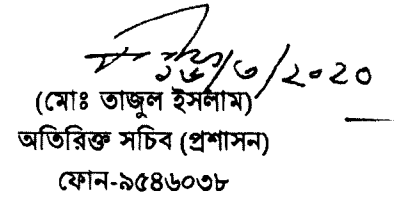 ১৬/৩/২০২০
(মোঃ তাজুল ইসলাম)
অতিরিক্ত সচিব (প্রশাসন)
ফোন-৯৫৪৬০৩৮